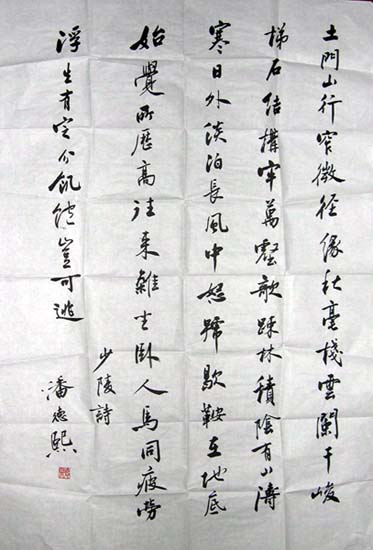 土門山行窄微徑緣秋毫棧雲闌干峻
梯石結構牢萬壑欹踈林積陰帶奔濤
寒日外淡泊長風中怒號歇鞍在地底
始覺所歷高往来雜坐臥人馬同疲勞
浮生有定分飢飽豈可逃
少陵詩
潘德熙